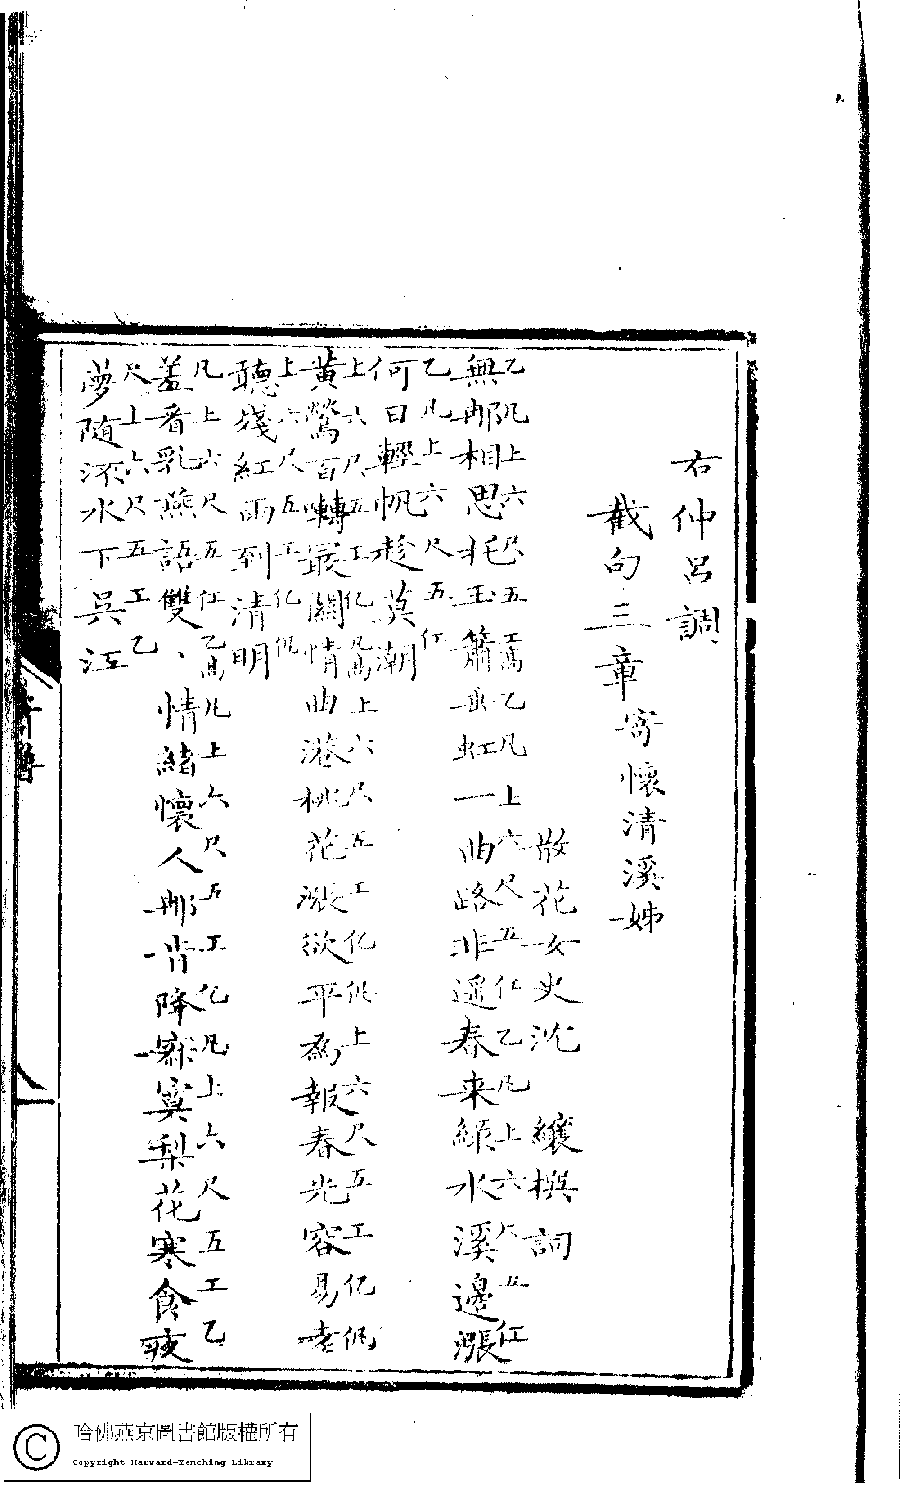 右仲呂調
截句三章寄懷清溪姊
散花女史沈 纕撰詞
乙凡上六尺五工乙凡上六尺五乙凡上六尺五仜
無那相思托玉簫垂虹一曲路非遥春来綠水溪邊漲
乙凡上六尺五
何日輕帆趁莫潮
上六尺五工亿凡上六尺五工亿上六尺五工亿
黃鶯百囀最關情曲港桃花漲欲平為報春光容易老
上六尺五工亿
聽殘紅雨到清明
凡上六尺五仜乙凡上六尺五工亿凡上六尺五工乙
羞看乳燕語雙、情緒懷人那肯降寂寞梨花寒食夜
尺上六尺五工乙
夢隨流水下吳江
八
哈佛燕京圖書館版權所有
Copyright Harvard-Yenching Library